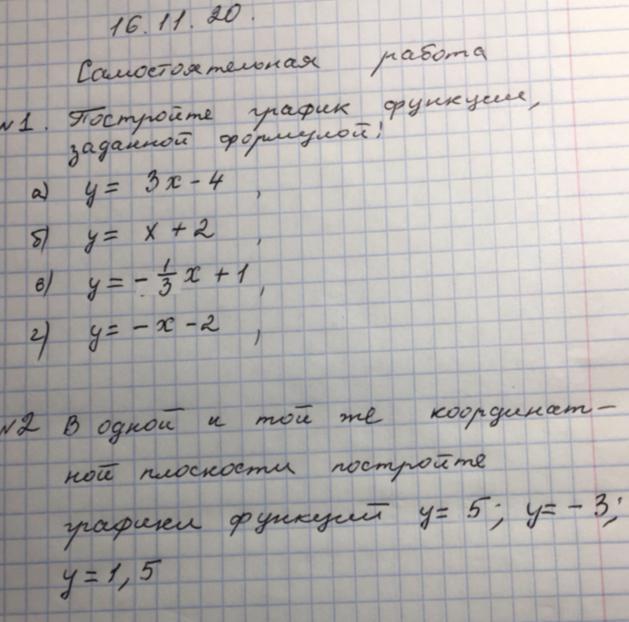 16.11.20.
Самостоятельная работа
№1. Постройте график функции,
заданной формулой:
а) y = 3x - 4 ,
б) y = x + 2 ,
в) y = - 1/3 x + 1 ,
г) y = - x - 2 ,
№2 В одной и той же координат-
ной плоскости постройте
графики функций y = 5; y = - 3;
y = 1,5